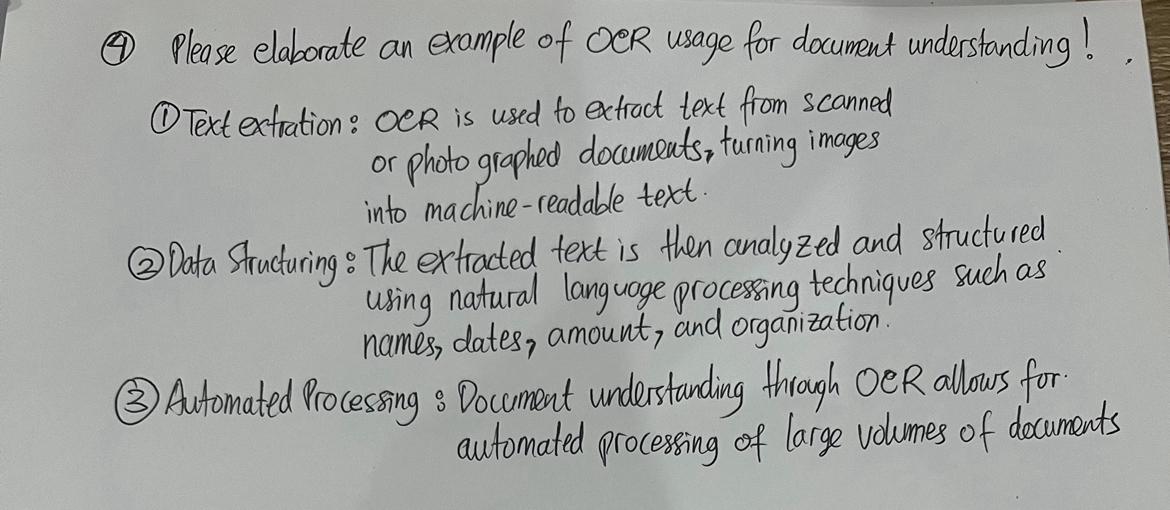 ④ Please elaborate an example of OCR usage for document understanding!
① Text extration: OCR is used to extract text from scanned
or photographed documents, turning images
into machine-readable text.
② Data Structuring: The extracted text is then analyzed and structured
using natural language processing techniques such as
names, dates, amount, and organization.
③ Automated Processing: Document understanding through OCR allows for
automated processing of large volumes of documents